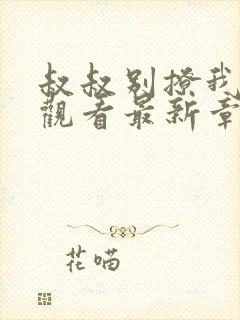 叔叔别撩我
觀看最新章
花喵